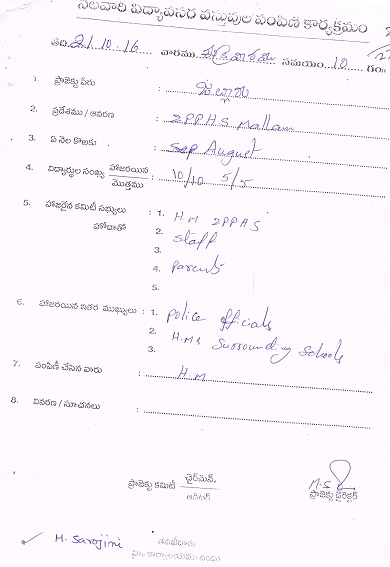 నెలవారి విద్యావసర వస్తువుల పంపిణి కార్యక్రమం
తేది. 21.10.16 వారము సమయం. 10 గం॥
1. ప్రాజెక్టు పేరు :
2. ప్రదేశము / ఆవరణ : ZPPHS Mallam
3. ఏ నెల కొఱకు : Sep August
4. విద్యార్థుల సంఖ్య హాజరయిన / మొత్తము : 10/10 5/5
5. హాజరైన కమిటీ సభ్యులు : 1. H.M ZPPHS
హోదాతో 2. staff
3.
4. parents
5.
6. హాజరయిన ఇతర ముఖ్యులు : 1. police officials
2. H.Ms Surrounding Schools
3.
7. పంపిణీ చేసిన వారు : H.M
8. వివరణ / సూచనలు :
ప్రాజెక్టు కమిటీ ఛైర్మెన్, / ఆడిటర్
M.S
ప్రాజెక్టు డైరెక్టర్
M. Sarojini